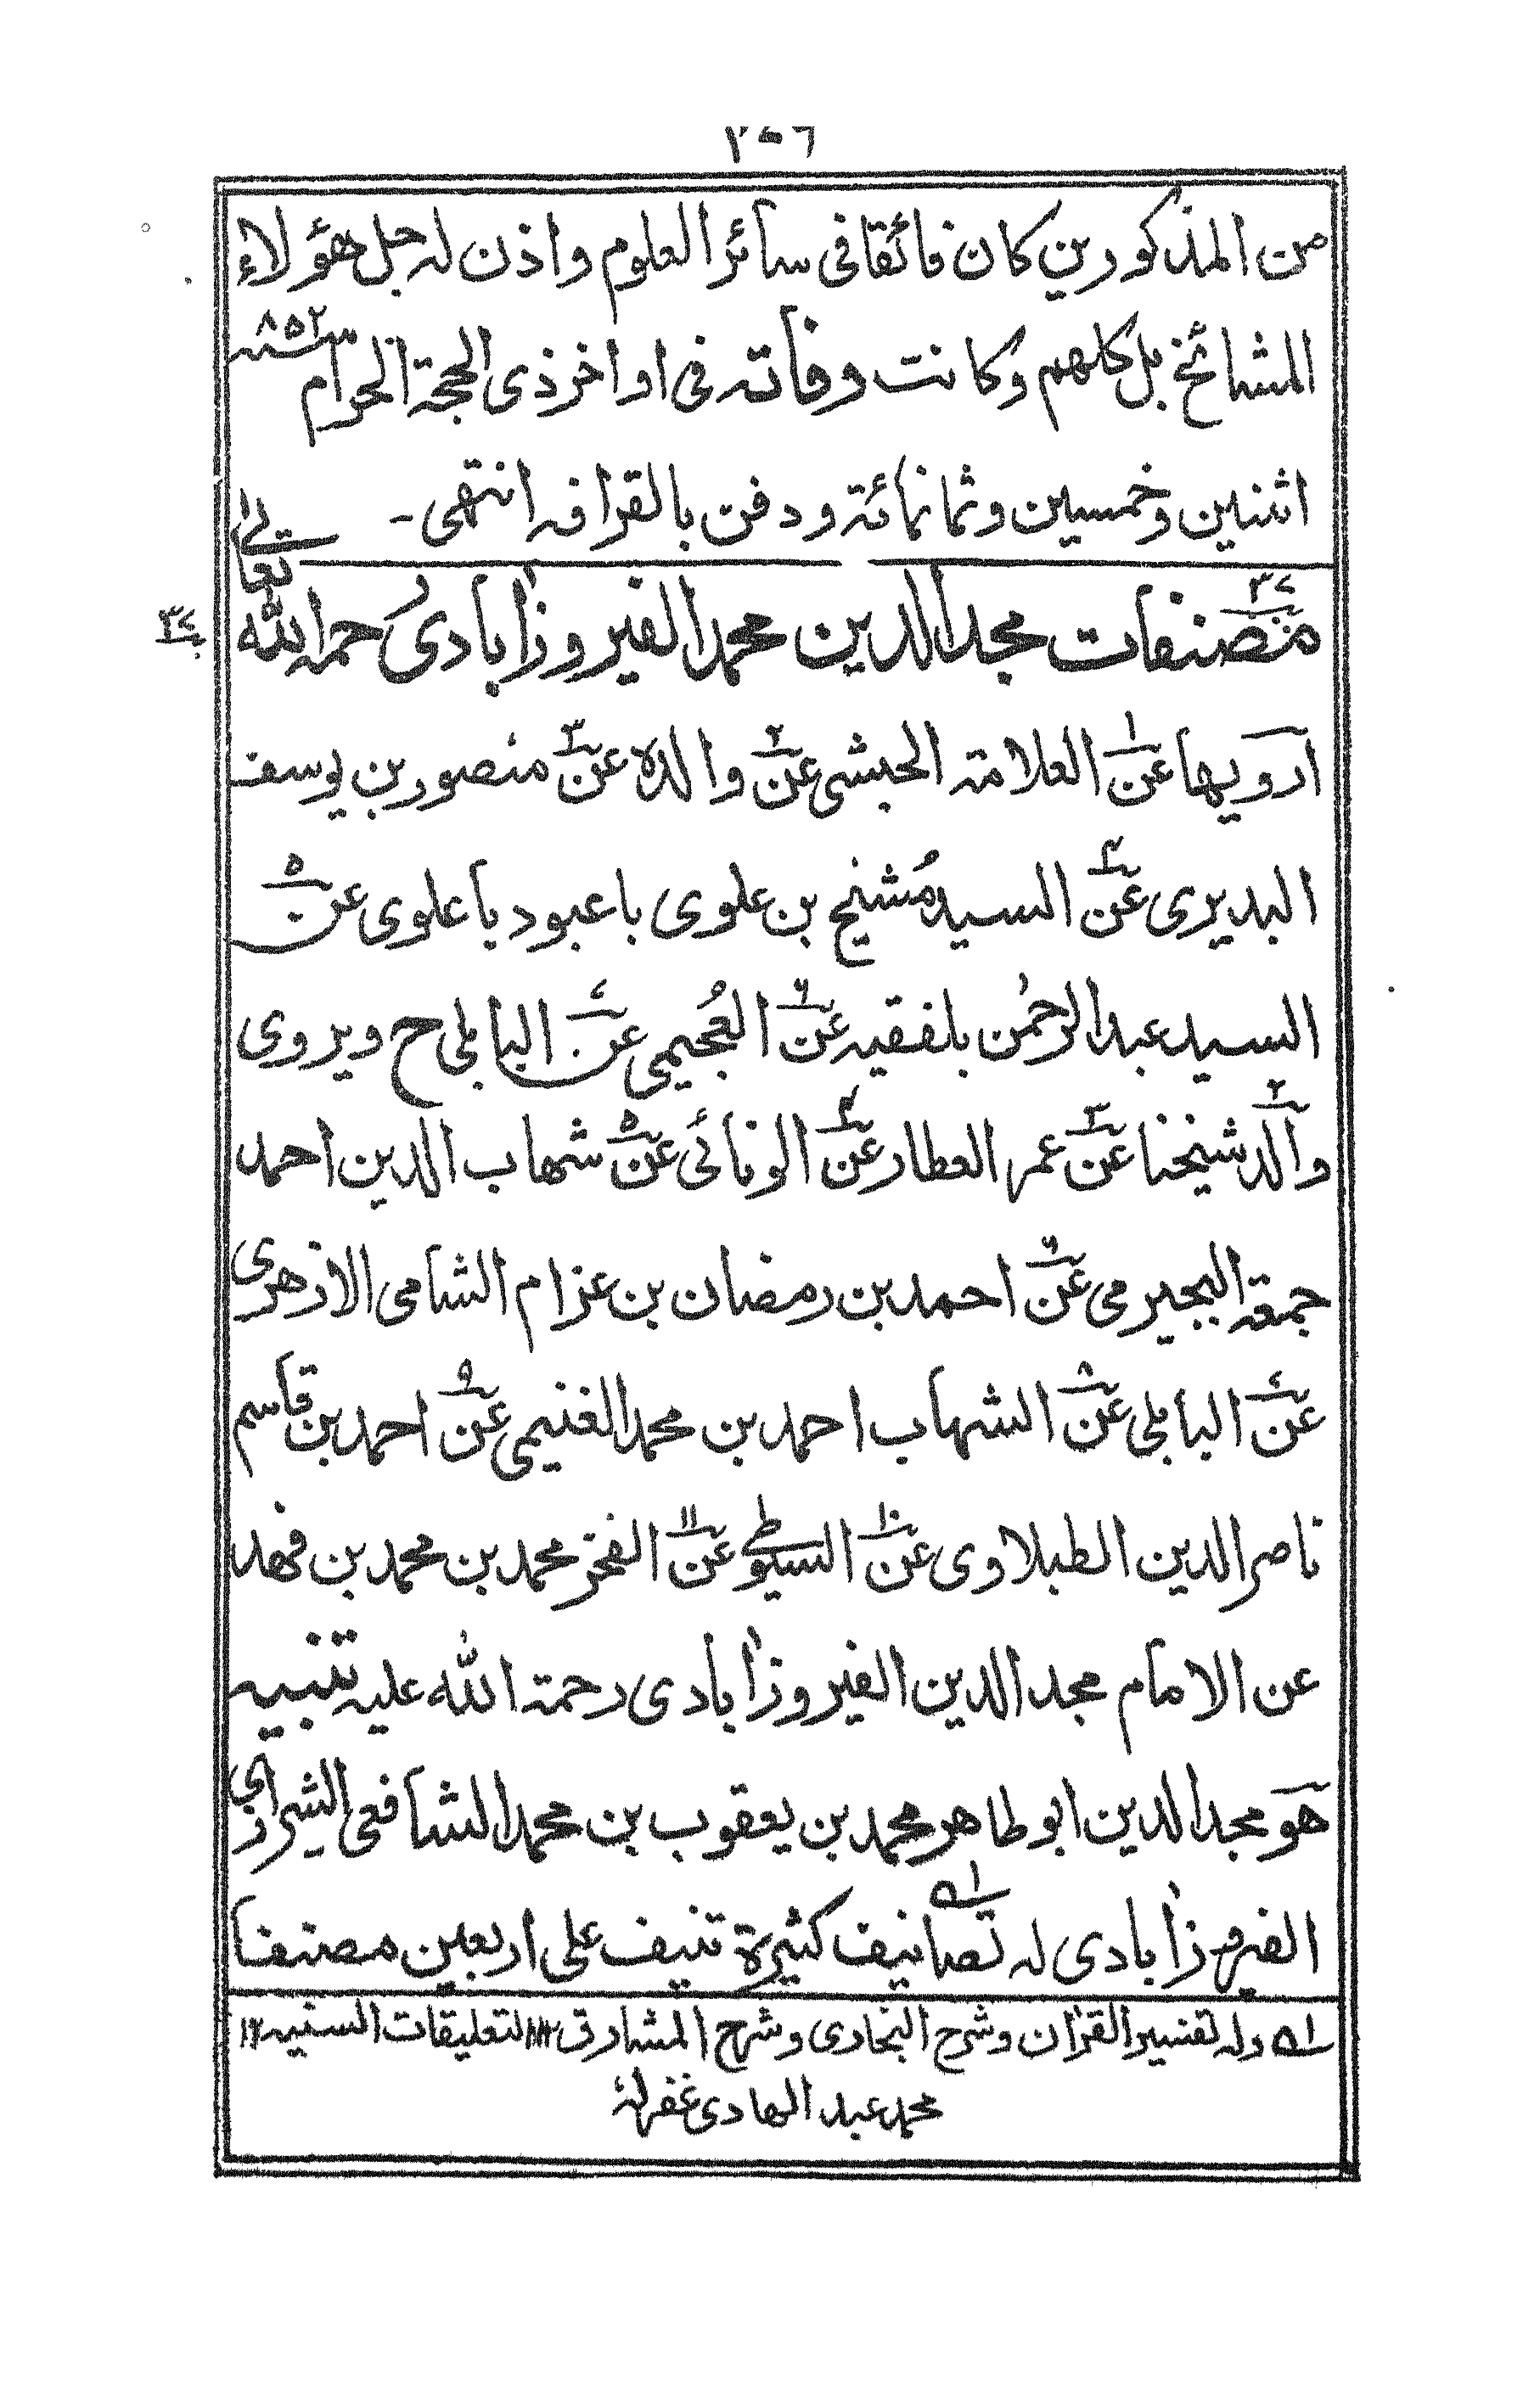 ٣٥٦
من المذكورين كان فائقا فى سائر العلوم واذن له جل هؤلاء
المشائخ بل كلهم وكانت وفاته فى اواخر ذى الحجة الحرام سنه ٨٥٢
اثنين وخمسين وثمانمائة ودفن بالقرافه انتهى۔
٣٧ مصنفات مجد الدين محمد الفيروزابادى رحمه الله تعالى
٣٧
ارويها عن ١ العلامته الحبشى عن ٢ والده عن ٣ منصور بن يوسف
البديرى عن ٤ السيد مُشيخ بن علوى باعبود باعلوى عن ٥
السيد عبد الرحمٰن بلفقيه عن ٦ العُجيمى عن ٧ البابلى ح ويروى
والد ٢ شيخنا عن ٣ عمر العطار عن ٤ الونائى عن ٥ شهاب الدين احمد
جمعة البجيرمى عن ٦ احمد بن رمضان بن عزام الشامى الازهرى
عن ٧ البابلى عن ٨ الشهاب احمد بن محمد الغنيمى عن ٩ احمد بن قاسم
ناصر الدين الطبلاوى عن ١٠ السيوطى عن ١١ الفخر محمد بن محمد بن فهد
عن الامام مجد الدين الفيروزابادى رحمته الله عليه تنبيه
هو مجد الدين ابو طاهر محمد بن يعقوب بن محمد الشافعى الشيرازى
الفيروزابادى له تصانيف ١ه كثيرة تنيف على اربعين مصنفا
١ه وله تفسير القران وشرح البخارى وشرح المشارق ١٢ التعليقات السنيه ١٢
محمد عبد الهادى غفرلهٗ